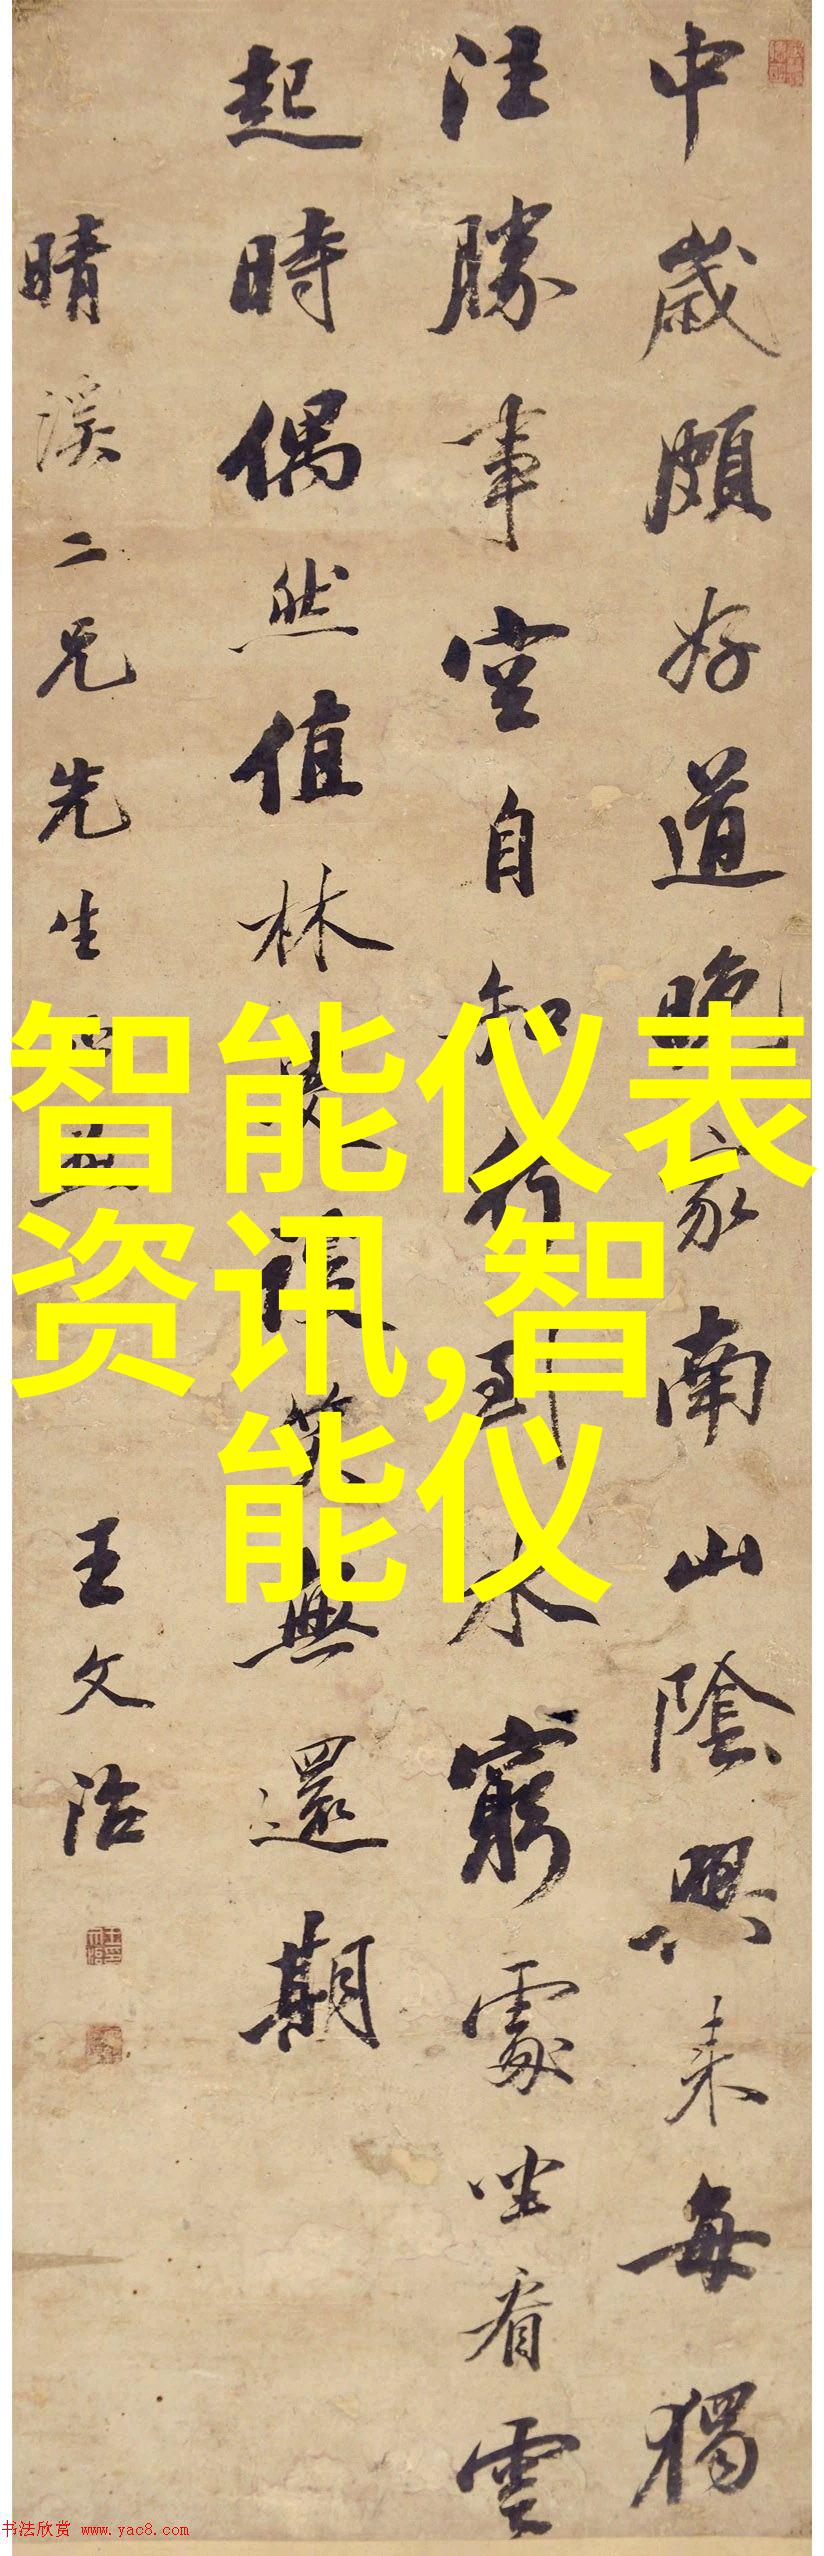 中歲頗好道晚家南山陲興来每獨
往勝事空自知行到水窮處坐看雲
起時偶然值林叟談笑無還期
晴溪二兄先生
王文治
智能仪表
资讯,智
能仪
书法欣赏 www.yac8.com